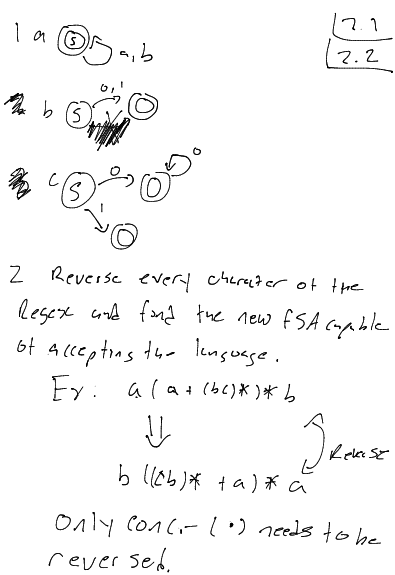 2.1
2.2
1 a S a,b
b S 0,1
c S 0 0
1
2 Reverse every character of the
Regex and find the new FSA capable
of accepting the language.
Ex: a(a+(bc)*)*b
b((cb)*+a)*a
Reverse
Only conc.- (·) needs to be
reversed.